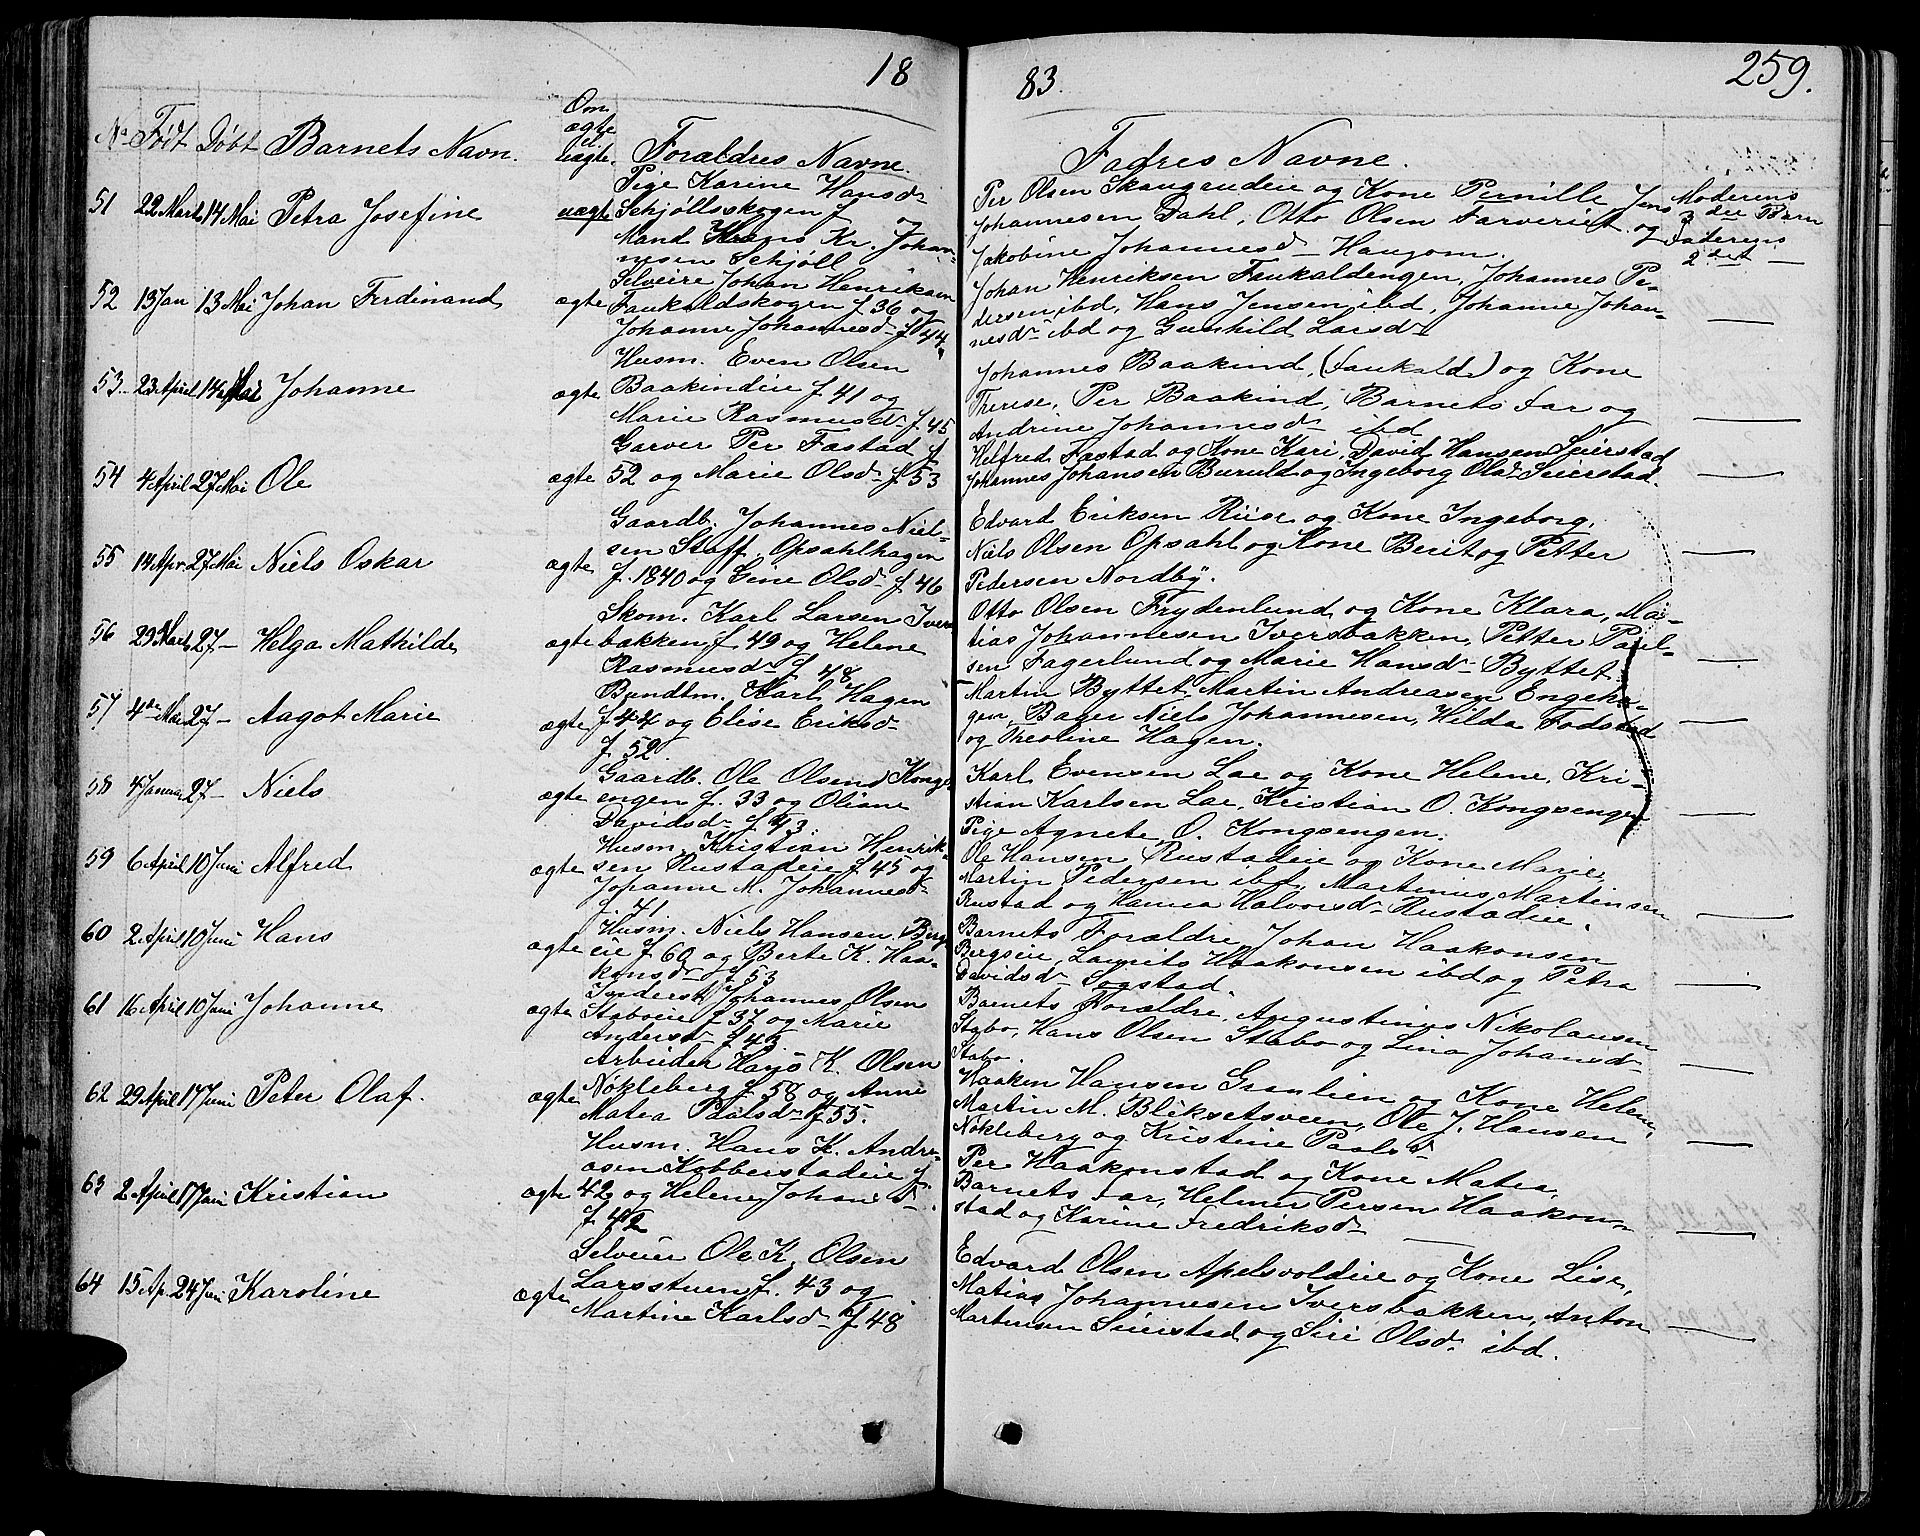 18
83.
259.
No Født Døbt Barnets Navn. Om ægte el. uægte. Forældres Navne. Fadres Navne.
51 22 Marts 14 Mai Petra Josefine uægte
Pige Karine Hansd
Schjøllsskogen f og
Mand Hans Kr. Johan-
nesen Schjøll
Per Olsen Skaugrudeie og Kone Pernille, Jens
Johannesen Dahl, Otto Olsen Farveriet og
Jakobine Johannesd Haugom.
Moderens
3die Barn
Faderens
2det
52 13 Jan 13 Mai Johan Ferdinand ægte
Selveier Johan Henriksen
Faukaldskogen f 36 og
Johanne Johannesd f 44.
Johan Henriksen Faukaldengen, Johannes Pe-
dersen ibd, Hans Jensen ibd, Johanne Johan-
nesd ibd og Gunhild Larsd
53. 23 April 14 Mai Johanne ægte
Husm. Even Olsen
Baakindeie f 41 og
Marie Rasmusd f. 45
Johannes Baakind, (Faukald) og Kone
Therese, Per Baakind, Barnets Far og
Andrine Johannesd ibd
54 4 April 27 Mai Ole ægte
Garver Per Fastad f
52 og Marie Olsd f 53
Helfred Fæstad og Kone Kari, David Hansen Seierstad
Johannes Johansen Buruld og Ingeborg Olsd Seierstad.
55 14 Apr 27 Mai Niels Oskar ægte
Gaardb. Johannes Niel-
sen Staff, Opsahlhagen
f. 1840 og Gine Olsd f 46
Edvard Eriksen Riise og Kone Ingeborg,
Niels Olsen Opsahl og Kone Berit og Petter
Pedersen Nordby.
56 29 Marts 27 — Helga Mathilde ægte
Skom. Karl Larsen Ivers
bakken f 49 og Helene
Rasmusd f 48
Otto Olsen Frydenlund og Kone Klara, Ma-
tias Johannesen Iversbakken, Petter Paul-
sen Fagerlund og Marie Hansd Byttet
57 4de Mai 27 — Aagot Marie ægte
Bundtm. Karl Hagen
f 44 og Elise Eriksd
f 52
Martin Byttet, Martin Andreasen Engeha-
gen, Bager Niels Johannesen, Hilda Fodstad
og Theoline Hagen.
58 4 Januar 27 — Niels ægte
Gaardb. Ole Olsen Kongs
engen f. 33 og Oliane
Davidsd f 43.
Karl Evensen Lae og Kone Helene, Kri-
stian Karlsen Lae, Kristian O. Kongsengen
Pige Agnete O. Kongsengen.
59 6 April 10 Juni Alfred ægte
Husm. Kristian Henrik-
sen Rustadeie f 45 og
Johanne M. Johannesd
f. 41
Ole Hansen Rustadeie og Kone Marie,
Martin Pedersen ibd, Martinus Martinsen
Rustad og Hanna Halvorsd Rustadeie.
60 2 April 10 Juni Hans ægte
Husm. Niels Hansen, Bergs
eie f 60 og Berte K. Haa-
konsd f 53
Barnets Forældre, Johan Haakonsen
Bergseie, Laurits Haakonsen ibd og Petra
Davidsd Sogstad.
61 16 April 10 Juni Johanne ægte
Inderst Johannes Olsen
Staboeie f 37 og Marie
Andersd f 43
Barnets Forældre, Augustinus Nikolausen
Stabo, Hans Olsen Stabo og Lina Johansd
Stabo.
62 29 April 17 Juni Peter Olaf. ægte
Arbeider Hans K. Olsen
Nøkleberg f 58 og Anne
Matea Paulsd f 55.
Haaken Hansen Granlien og Kone Helene,
Martin M. Bliksetsveen, Ole J. Hansen
Nøkleberg og Kristine Paalsd
63 2 April 17 Juni Kristian ægte
Husm. Hans K. Andre-
asen Kobberstadeie f
42 og Helene Johansd
f 42
Per Haakonstad og Kone Matea,
Barnets Far, Helmer Persen Haakon-
stad og Karine Fredriksd
64 15 Ap. 24 Juni Karoline ægte
Selveier Ole K. Olsen
Larsstuen f. 43 og
Martine Karlsd f 48
Edvard Olsen Apelsvoldeie og Kone Lise,
Matias Johannesen Iversbakken, Anton
Martinsen Seierstad og Siri Olsd. ibd.